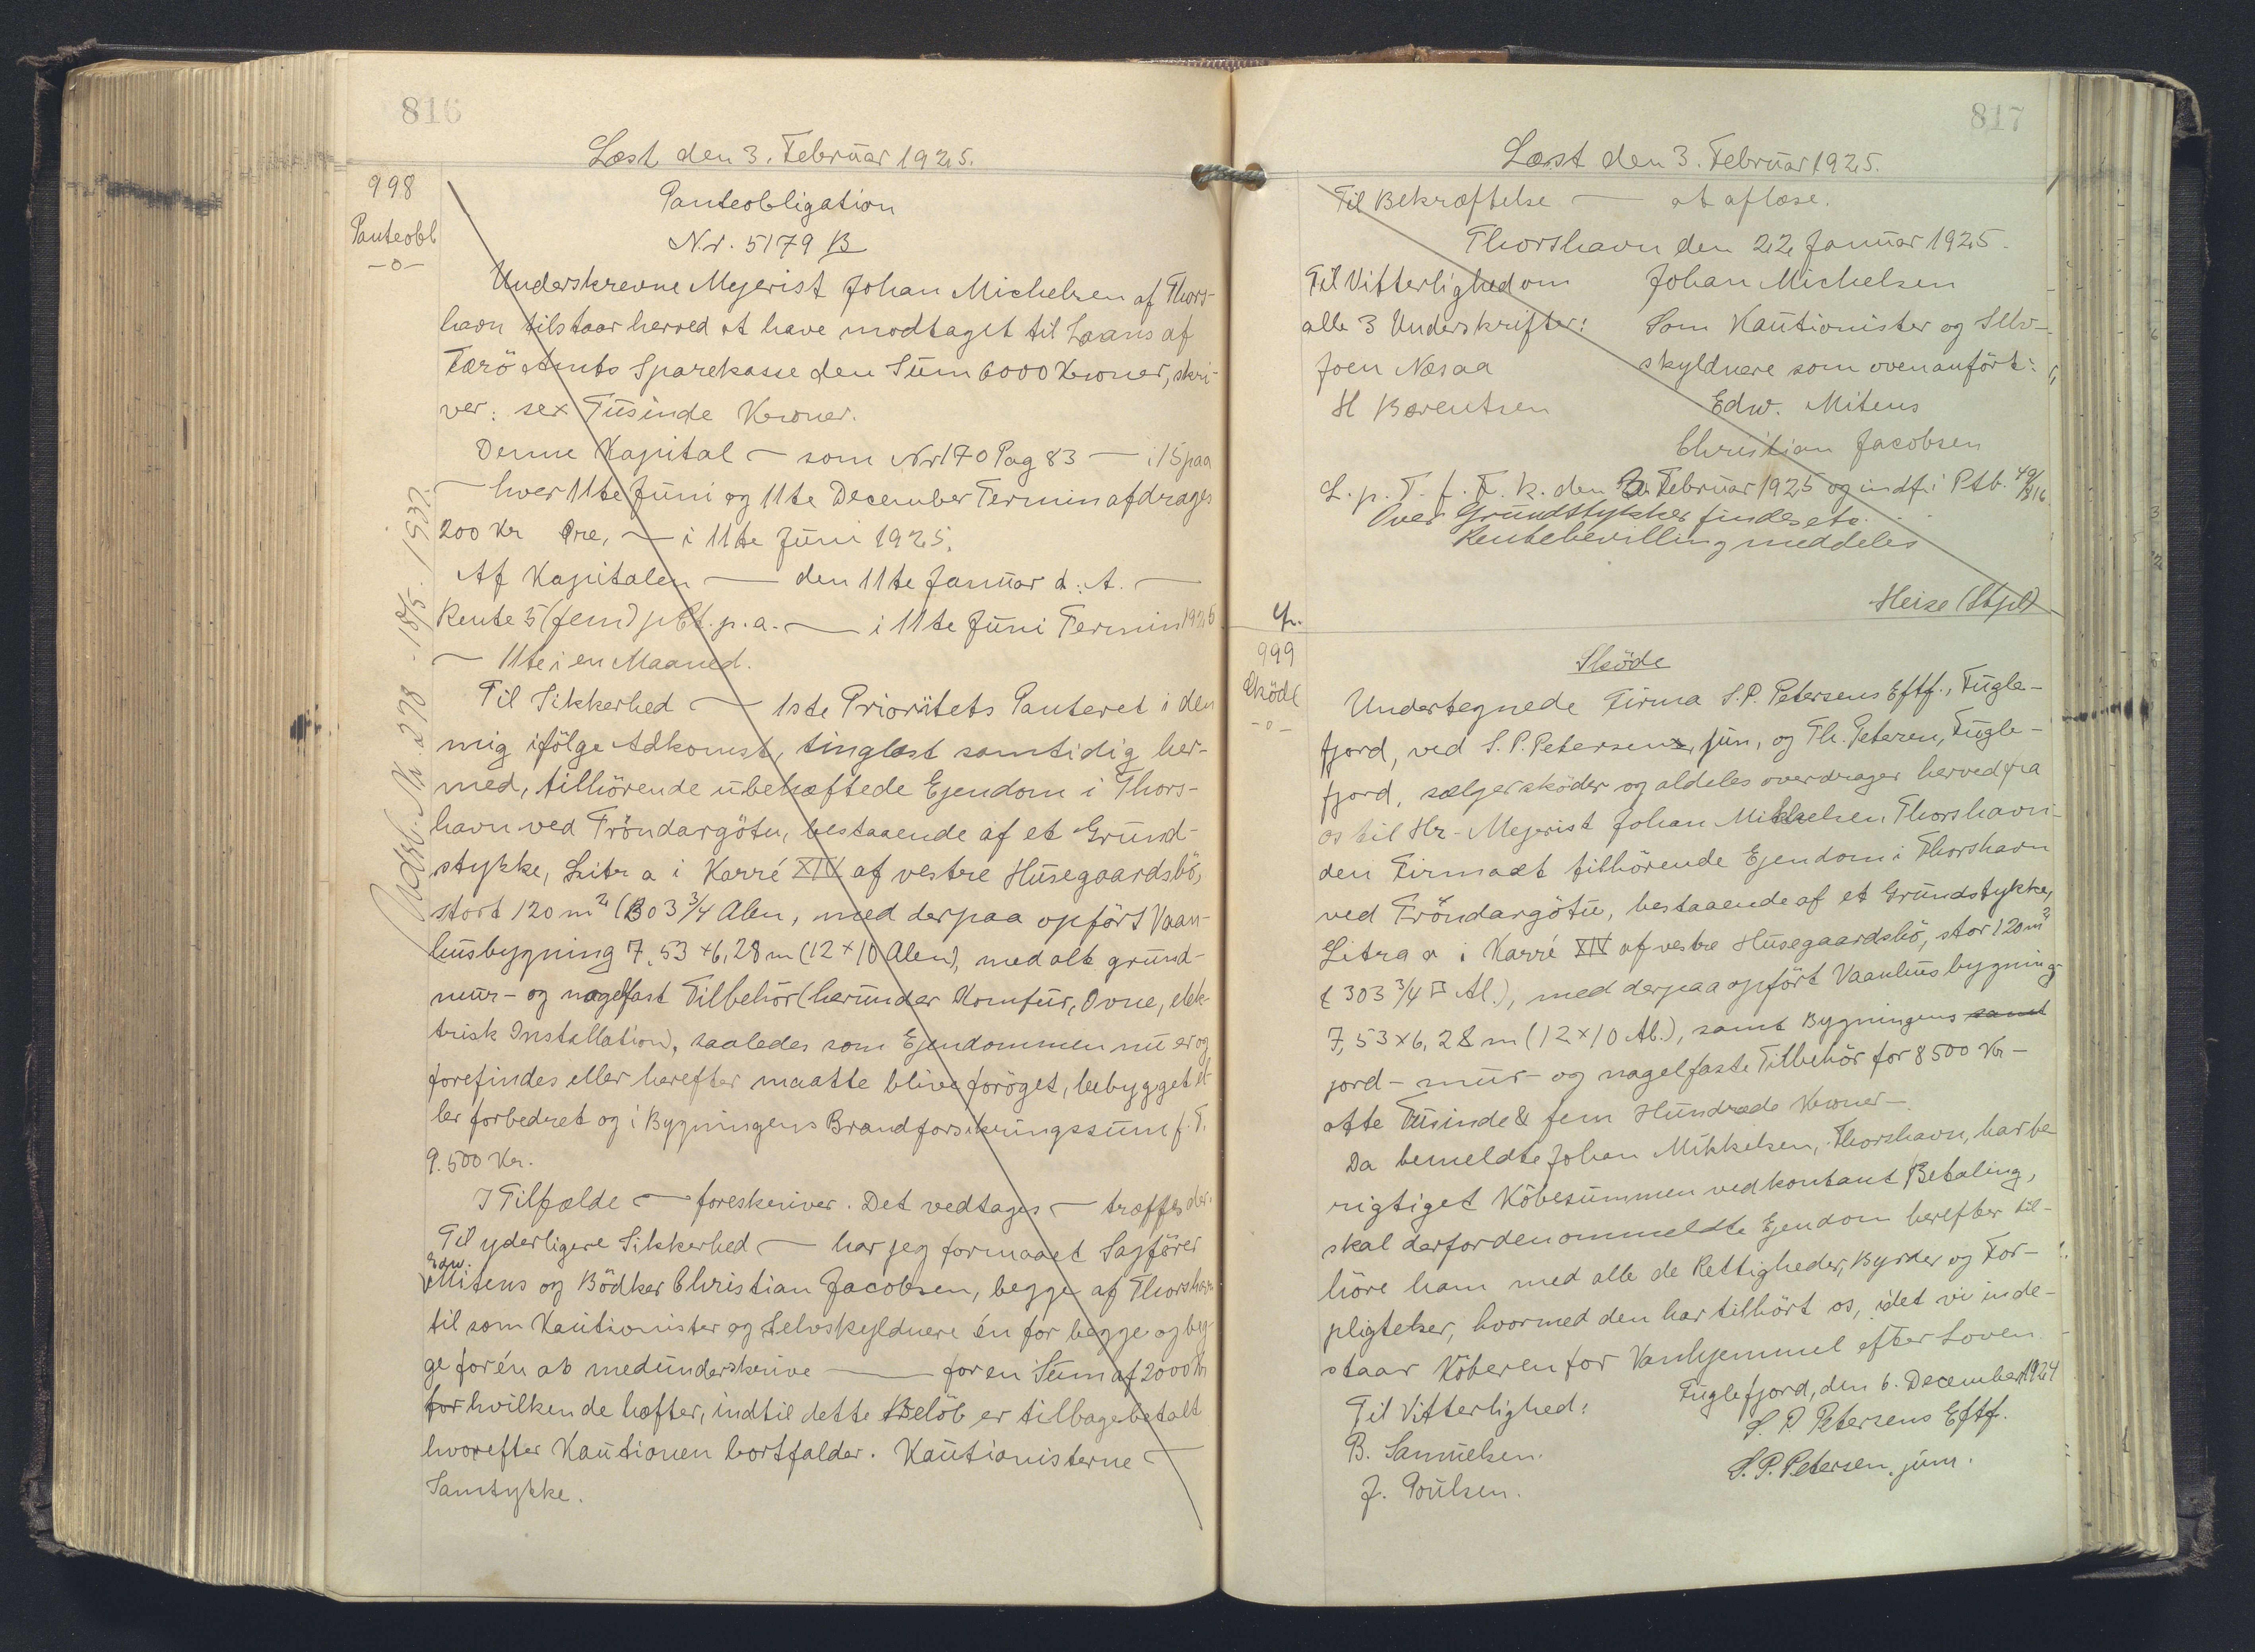 816
Læst den 3. Februar 1925.
998
Panteobl
-o-
Panteobligation
Nr. 5179 B
Underskrevne Mejerist Johan Michelsen af Thors-
havn tilstaar herved at have modtaget til Laans af
Færö Amts Sparekasse den Sum 6000 Kroner, skri-
ver: sex Tusinde Kroner.
Denne Kapital — som Nr 170 Pag 83 — i 15 paa
— hver 11te Juni og 11te December Termin afdrages
200 Kr Öre, — i 11te Juni 1925.
Af Kapitalen — den 11te Januar d: A. —
Rente 5 (fem) pCt. p. a. — i 11te Juni Termin 1925
— 11te i en Maaned.
Til Sikkerhed — 1ste Prioritets Panteret i den
mig ifölge Adkomst, tinglæst samtidig her-
med, tilhörende ubehæftede Ejendom i Thors-
havn ved Tröndargötu, bestaaende af et Grund-
stykke, Litr a i Karré XIV af vestre Husegaardsbö,
stort 120 m² (303 3/4 Alen, med derpaa opfört Vaan-
husbygning 7,53 x 6,28 m (12 x 10 Alen), med alt grund-
mur- og nagelfast Tilbehör (herunder Komfur, Ovne, elek-
trisk Installation), saaledes som Ejendommen nu er og
forefindes eller herefter maatte blive foröget, bebygget el-
ler forbedret og i Bygningens Brandforsikringssum f. T.
9.500 Kr.
I Tilfælde — foreskriver. Det vedtages — træffes der.
Til yderligere Sikkerhed — har jeg formaaet Sagförer
Edw.
Mitens og Bödker Christian Jacobsen, begge af Thorshavn
til som Kautionister og Selvskyldnere én for begge og beg-
ge for én at medunderskrive — for en Sum af 2000 Kr
for hvilken de hæfter, indtil dette Belöb er tilbagebetalt
hvorefter Kautionen bortfalder. Kautionisterne —
Samtykke.
Udsl. Nr 278 - 18/5. 1932.
817
Læst den 3. Februar 1925.
Til Bekræftelse — at aflæse.
Thorshavn den 22 Januar 1925.
Til Vitterlighed om Johan Michelsen
alle 3 Underskrifter: Som Kautionister og Selv-
Joen Næsaa skyldnere som ovenanfört:
H Bærentsen Edw. Mitens
Christian Jacobsen
L. p. T. f. F. k. den 3. Februar 1925 og indf. i Ptb. 49/816
Over Grundstykker findes etc.
Rentebevilling meddeles
Heise (Stpl)
999
Sköde
-o-
Sköde
Undertegnede Firma S. P. Petersens Eftf., Fugle-
fjord, ved S. P. Petersen, jun, og Th. Petersen, Fugle-
fjord, sælger sköder og aldeles overdrager herved fra
os til Hr. Mejerist Johan Mikkelsen Thorshavn-
den Firmaet tilhörende Ejendom i Thorshavn
ved Tröndargötu, bestaaende af et Grundstykke,
Litra a i Karré XIV af vestre Husegaardsbö, stor 120 m²
(303 3/4 □ Al.), med derpaa opfört Vaanhusbygning
7,53 x 6,28 m (12 x 10 Al.), samt Bygningens samt
jord- mur- og nagelfaste Tilbehör for 8500 Kr -
otte Tusinde & fem Hundrede Kroner -
Da bemeldte Johan Mikkelsen, Thorshavn, har be-
rigtiget Köbesummen ved kontant Betaling,
skal derfor den ommeldte Ejendom herefter til-
höre ham med alle de Rettigheder, Byrder og For-
pligtelser, hvormed den har tilhört os, idet vi inde-
staar Köberen for Vanhjemmel efter Loven.
Fuglefjord, den 6. December 1924
Til Vitterlighed: S. P Petersens Eftf.
B. Samuelsen. S. P. Petersen. jun.
J. Poulsen.